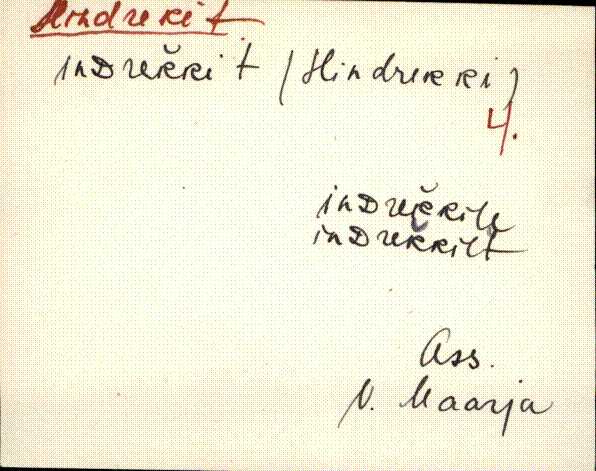 Hindrekit
inDrek̆kit (Hindrekki)
4.
inDrek̆kile
inDrek̆kilt
Ass.
V. Maarja